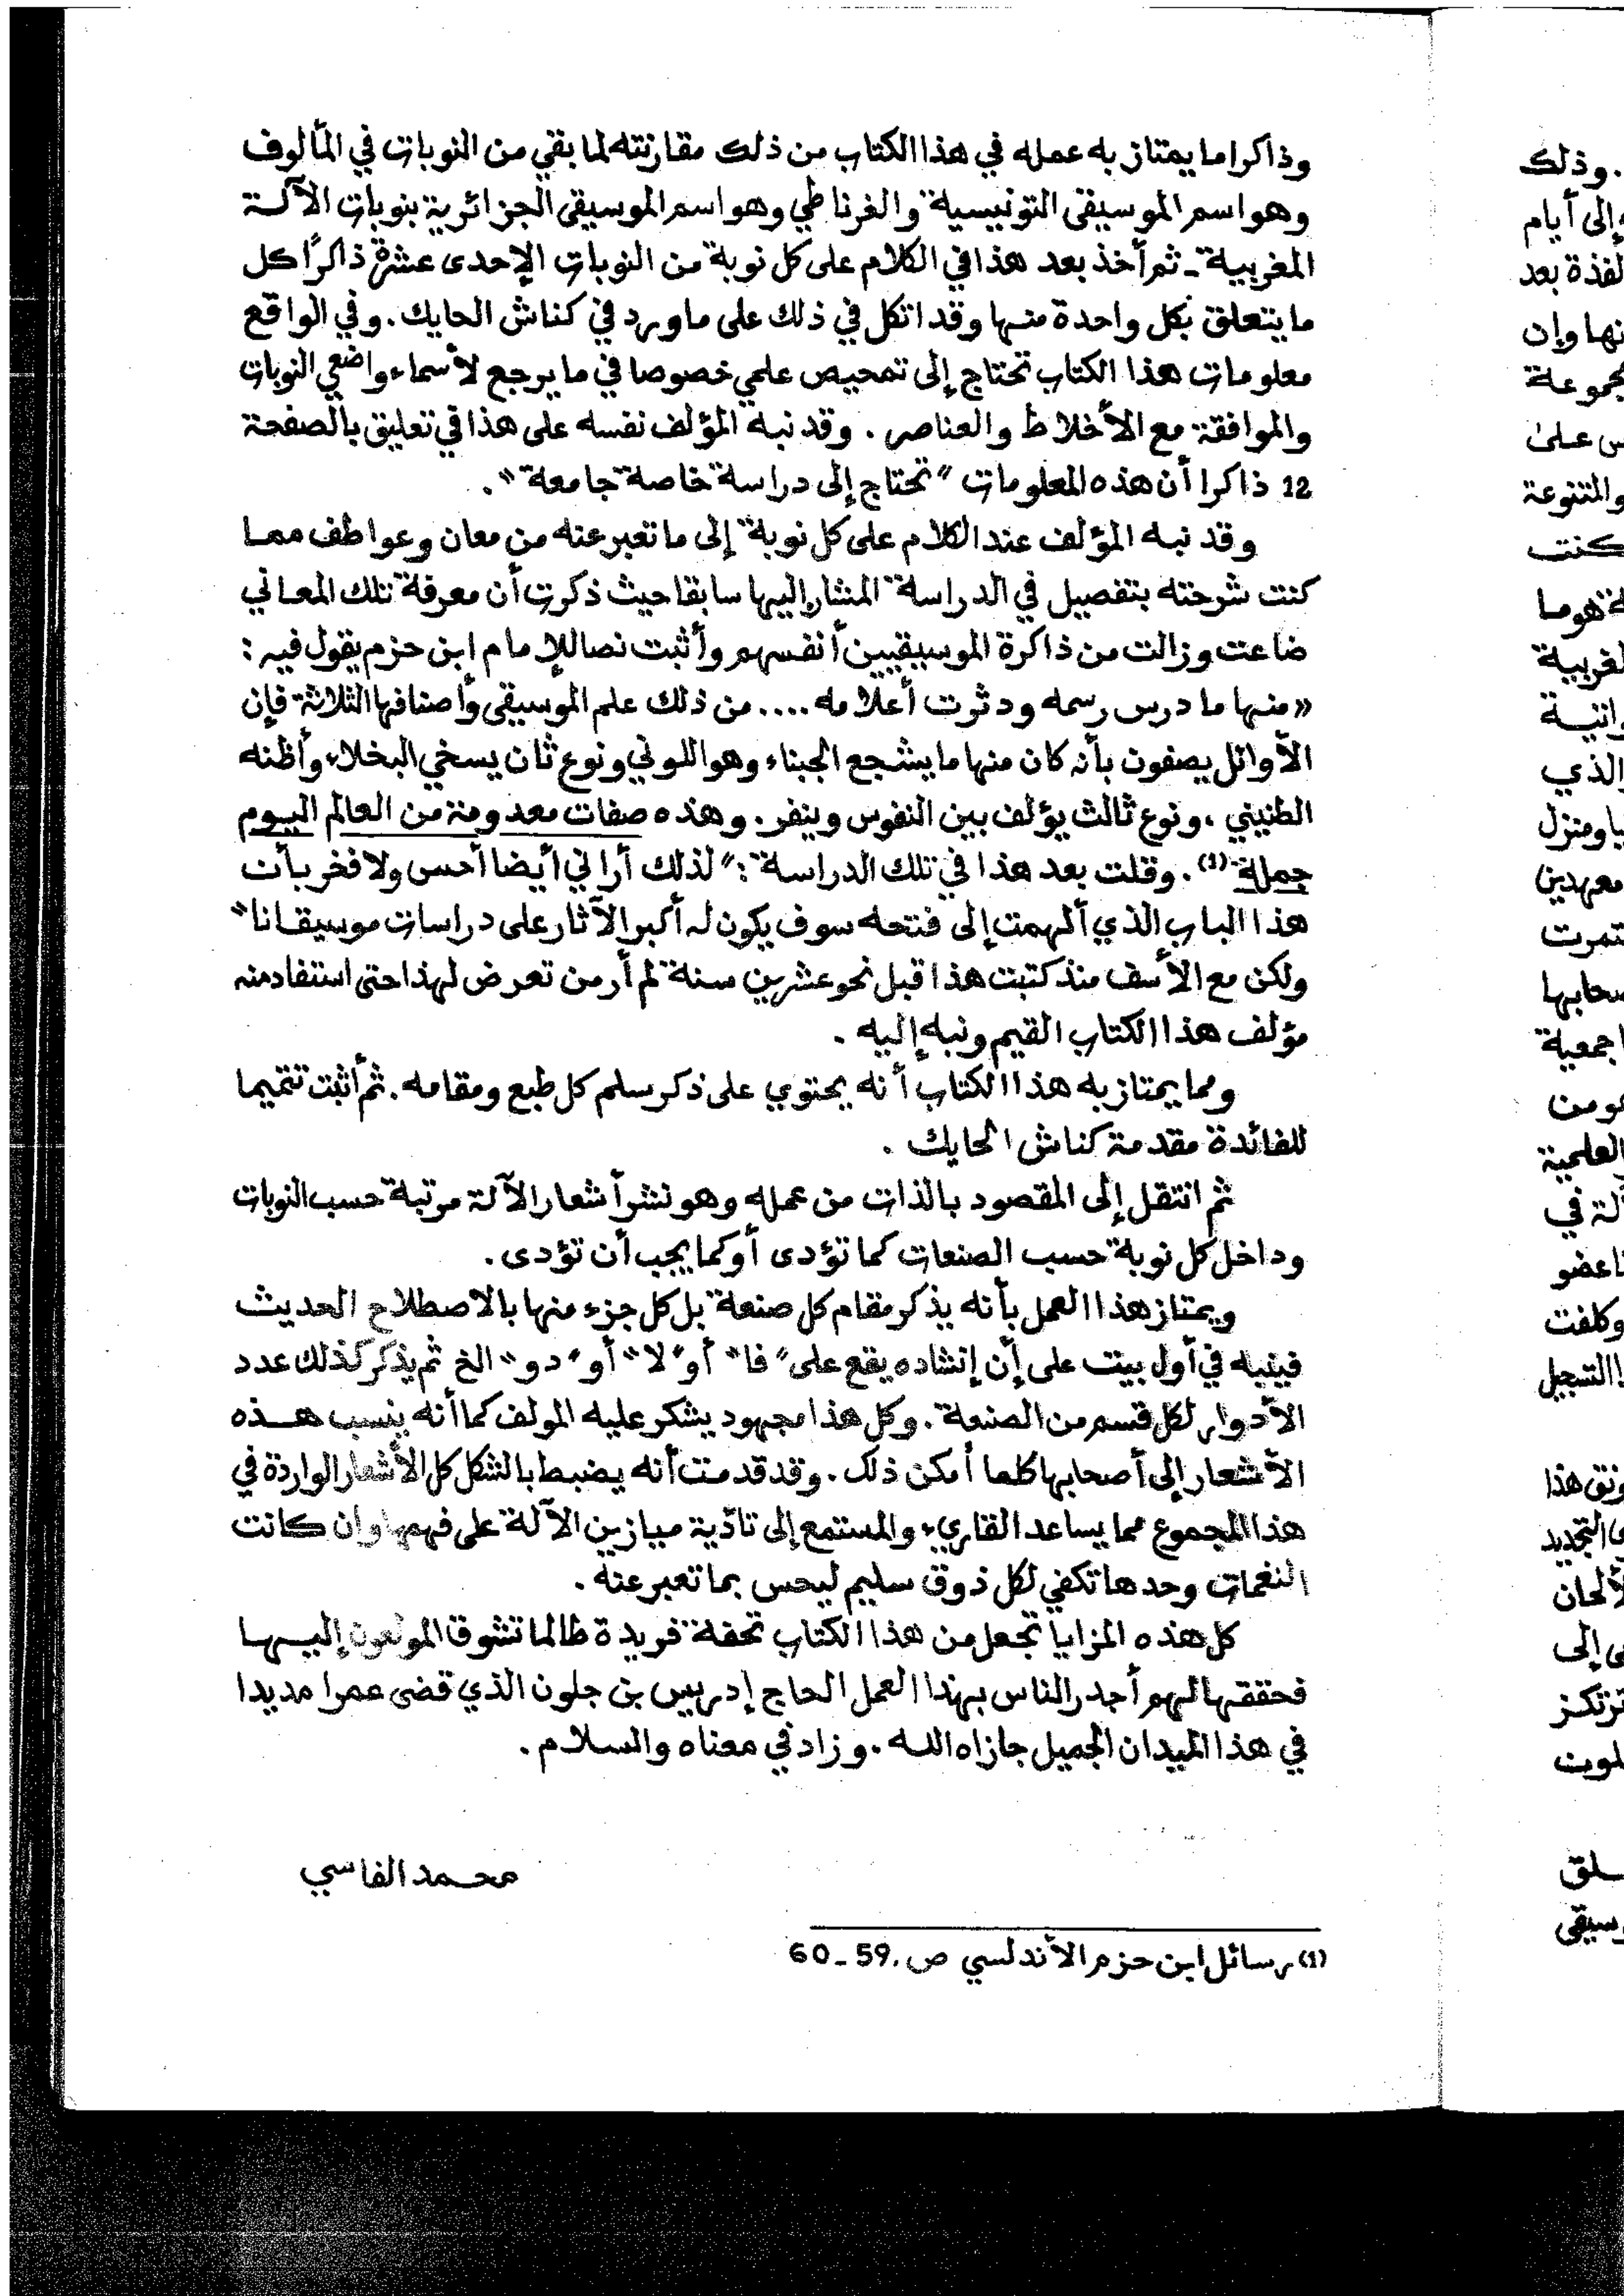 وذاكرا ما يمتاز به عمله في هذا الكتاب من ذلك مقارنته لما بقي من النوبات في المألوف
وهو اسم الموسيقى التونيسية والغرناطي وهو اسم الموسيقى الجزائرية بنوبات الآلة
المغربية ـ ثم أخذ بعد هذا في الكلام على كل نوبة من النوبات الإحدى عشرة ذاكرًا كل
ما يتعلق بكل واحدة منها وقد اتكل في ذلك على ما ورد في كناش الحايك . وفي الواقع
معلومات هذا الكتاب تحتاج إلى تمحيص علمي خصوصا في ما يرجع لأسماء واضعي النوبات
والموافقة مع الأخلاط والعناصر . وقد نبه المؤلف نفسه على هذا في تعليق بالصفحة
12 ذاكرا أن هذه المعلومات "تحتاج إلى دراسة خاصة جامعة" .
وقد نبه المؤلف عند الكلام على كل نوبة إلى ما تعبر عنه من معان وعواطف مما
كنت شرحته بتفصيل في الدراسة المشار إليها سابقا حيث ذكرت أن معرفة تلك المعاني
ضاعت وزالت من ذاكرة الموسيقيين أنفسهم وأثبت نصا للإمام ابن حزم يقول فيه :
«منها ما درس رسمه ودثرت أعلامه .... من ذلك علم الموسيقى وأصنافها الثلاثة فإن
الأوائل يصفون بأنه كان منها ما يشجع الجبناء وهو اللوني ونوع ثان يسخي البخلاء وأظنه
الطنيني ، ونوع ثالث يؤلف بين النفوس وينفر . وهذه صفات معدومة من العالم اليوم
جملة" (1) . وقلت بعد هذا في تلك الدراسة : "لذلك أراني أيضا أحس ولا فخر بأن
هذا الباب الذي ألهمت إلى فتحه سوف يكون له أكبر الآثار على دراسات موسيقانا"
ولكن مع الأسف منذ كتبت هذا قبل نحو عشرين سنة لم أر من تعرض لهذا حتى استفاد منه
مؤلف هذا الكتاب القيم ونبه إليه .
ومما يمتاز به هذا الكتاب أنه يحتوي على ذكر سلم كل طبع ومقامه . ثم أثبت تتميما
للفائدة مقدمة كناش الحايك .
ثم انتقل إلى المقصود بالذات من عمله وهو نشر أشعار الآلة مرتبة حسب النوبات
وداخل كل نوبة حسب الصنعات كما تؤدى أو كما يجب أن تؤدى .
ويمتاز هذا العمل بأنه يذكر مقام كل صنعة بل كل جزء منها بالاصطلاح الحديث
فينبه في أول بيت على أن إنشاده يقع على "فا" أو "لا" أو "دو" الخ ثم يذكر كذلك عدد
الأدوار لكل قسم من الصنعة . وكل هذا مجهود يشكر عليه المولف كما أنه ينسب هذه
الأشعار إلى أصحابها كلما أمكن ذلك . وقد قدمت أنه يضبط بالشكل كل الأشعار الواردة في
هذا المجموع مما يساعد القاريء والمستمع إلى تأدية ميازين الآلة على فهمها وان كانت
النغمات وحدها تكفي لكل ذوق سليم ليحس بما تعبر عنه .
كل هذه المزايا تجعل من هذا الكتاب تحفة فريدة طالما تشوق المولعون إليها
فحققها لهم أجدر الناس بهذا العمل الحاج إدريس بن جلون الذي قضى عمرا مديدا
في هذا الميدان الجميل جازاه الله . وزاد في معناه والسلام .
محمد الفاسي
(1) رسائل ابن حزم الأندلسي ص . 59 ـ 60